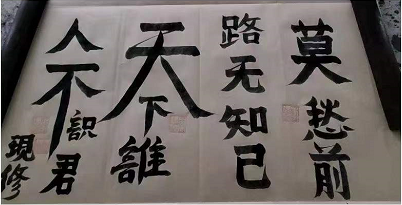 莫愁前
路无知己
天下誰
人不識君
現修